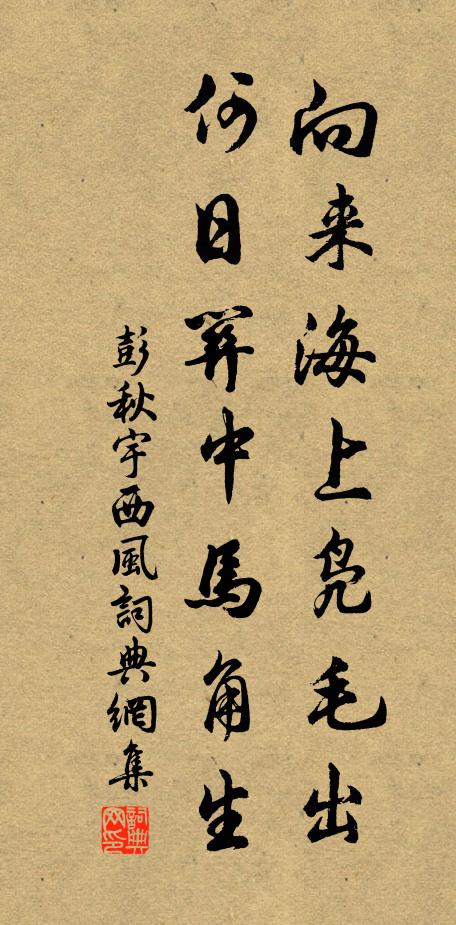 向来海上凫毛出
何日笄中馬角生
彭秋宇西風詞典網集
詞典网印